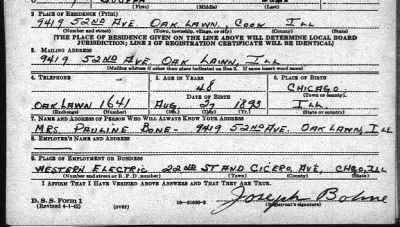 (First) (Middle) (Last)
2. PLACE OF RESIDENCE (Print)
9419 52ND AVE. OAK LAWN, COOK ILL
(Number and street) (Town, township, village, or city) (County) (State)
[THE PLACE OF RESIDENCE GIVEN ON THE LINE ABOVE WILL DETERMINE LOCAL BOARD
JURISDICTION; LINE 2 OF REGISTRATION CERTIFICATE WILL BE IDENTICAL]
3. MAILING ADDRESS
9419 52ND AVE. OAK LAWN, ILL
[Mailing address if other than place indicated on line 2. If same insert word same]
4. TELEPHONE 5. AGE IN YEARS 6. PLACE OF BIRTH
48 CHICAGO
DATE OF BIRTH (Town or county)
OAK LAWN 1641 AUG. 27 1893 ILL.
(Exchange) (Number) (Mo.) (Day) (Yr.) (State or country)
7. NAME AND ADDRESS OF PERSON WHO WILL ALWAYS KNOW YOUR ADDRESS
MRS. PAULINE BONE - 9419 52ND AVE. OAK LAWN, ILL
8. EMPLOYER'S NAME AND ADDRESS
9. PLACE OF EMPLOYMENT OR BUSINESS
WESTERN ELECTRIC 22ND ST AND CICERO, AVE, CHGO, ILL
(Number and street or R. F. D. number) (Town) (County) (State)
I AFFIRM THAT I HAVE VERIFIED ABOVE ANSWERS AND THAT THEY ARE TRUE.
D. S. S. Form 1
(Revised 4-1-42) (over) 16-21630-2 Joseph Bohne
(Registrant's signature)